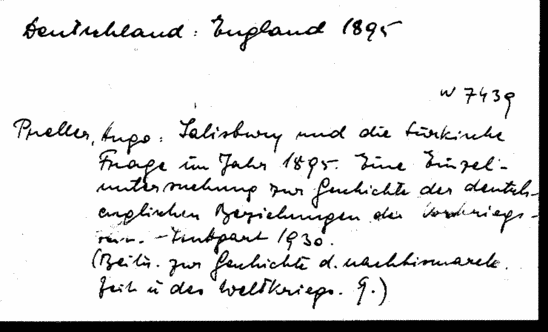 Deutschland : England 1895
W 7439
Preller, Hugo : Salisbury und die türkische
Frage im Jahr 1895. Eine Einzel-
untersuchung zur Geschichte der deutsch-
englischen Beziehungen der Vorkriegs-
zeit. - Stuttgart 1930.
(Beitr. zur Geschichte d. nachbismarck.
Zeit u des Weltkriegs. 9.)